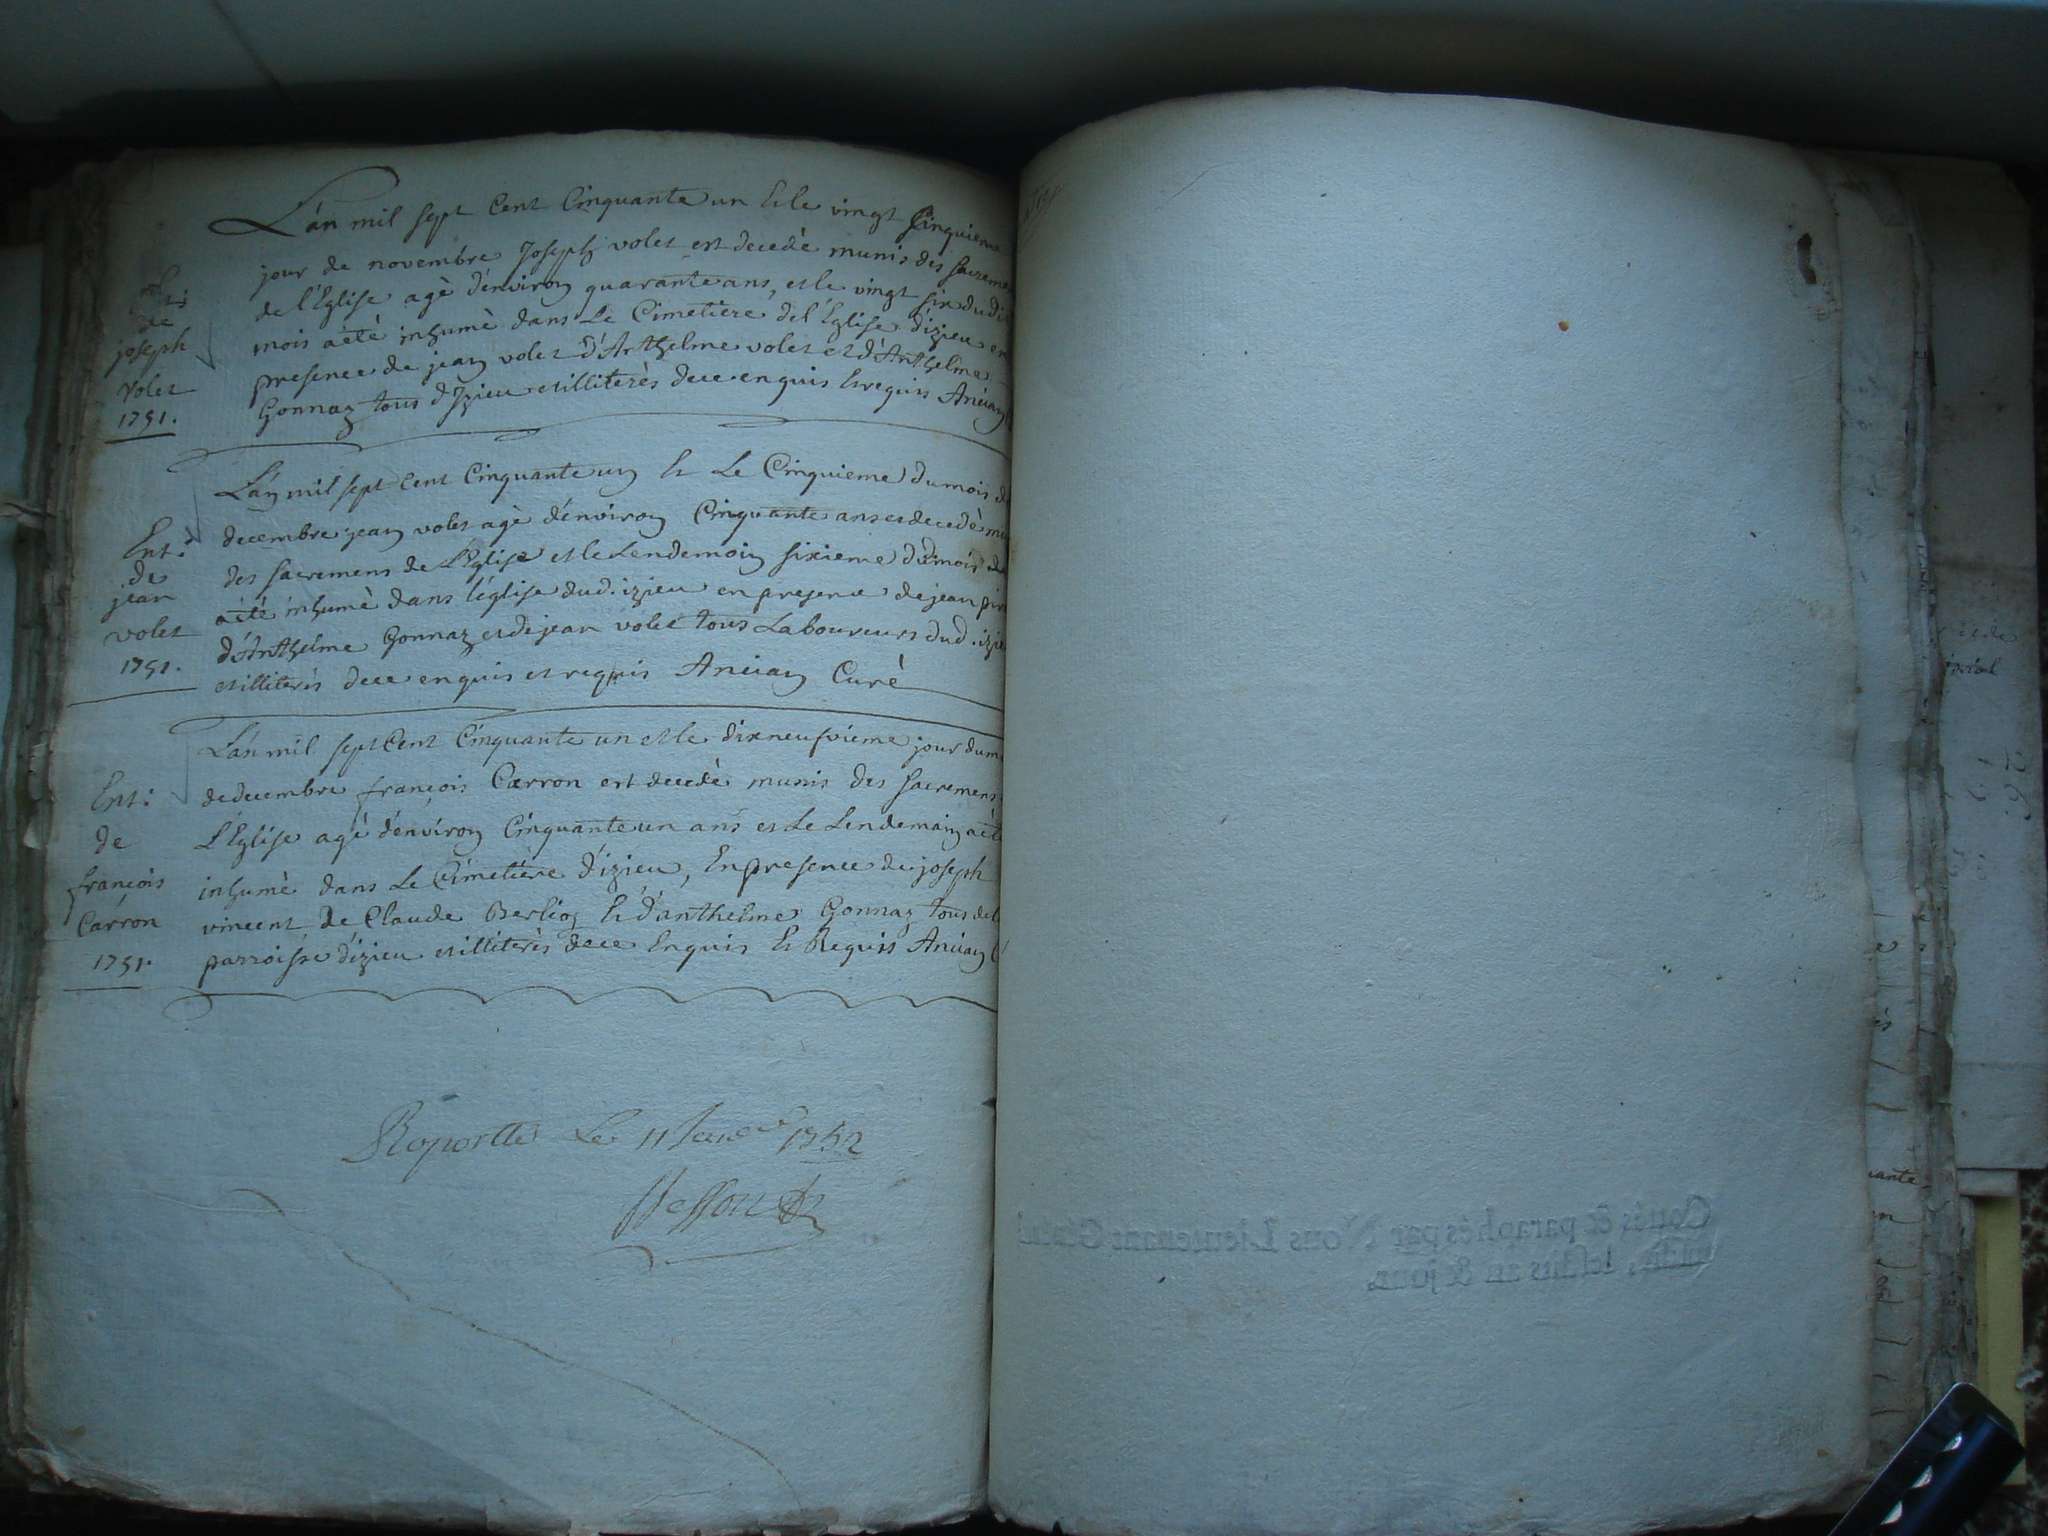 L'an mil sept Cent Cinquante un Et le vingt Cinquieme
jour de novembre Joseph volet est decedè munis des sacreme
de l'Eglise agè d'environ quarante ans, et le vingt six du di
mois a étè inhumè dans Le Cimetiere de l'Eglise d'izieu en
presence de jean volet d'Anthelme volet et d'Anthelme
Gonnaz tous d'Izieu et illiterès de ce enquis Et requis Ancian
de
joseph
Volet
1751.
L'an mil sept Cent Cinquante un Et Le Cinquieme du mois de
decembre jean volet agè d'environ Cinquante ans es decedè mu
des sacremens de L'Eglise et le Lendemain sixieme du
a étè inhumè dans l'église dud. izieu en presence de jean
d'Anthelme Gonnaz et de jean volet tous Laboureurs dud. izie
et illiterès de ce enquis et requis Ancian Curè
Ent:
de
jean
volet
1751.
L'an mil sept Cent Cinquante un et le dixneufvieme jour du m
de decembre françois Carron est decedè munis des sacremens
L'Eglise agè d'environ Cinquante un ans et Le Lendemain a étè
inhumè dans Le Cimetière d'izieu, En presence de joseph
vincent de Claude Berlioz Et d'anthelme Gonnaz tous de l
parroisse d'izieu et illiterès de ce Enquis Et Requis Ancian C
Ent:
de
françois
Carron
1751.
Raportè Le 11 Janv. 1752
Cottés & paraphés par Nous Lieutenant Général
lesdits an & jour.